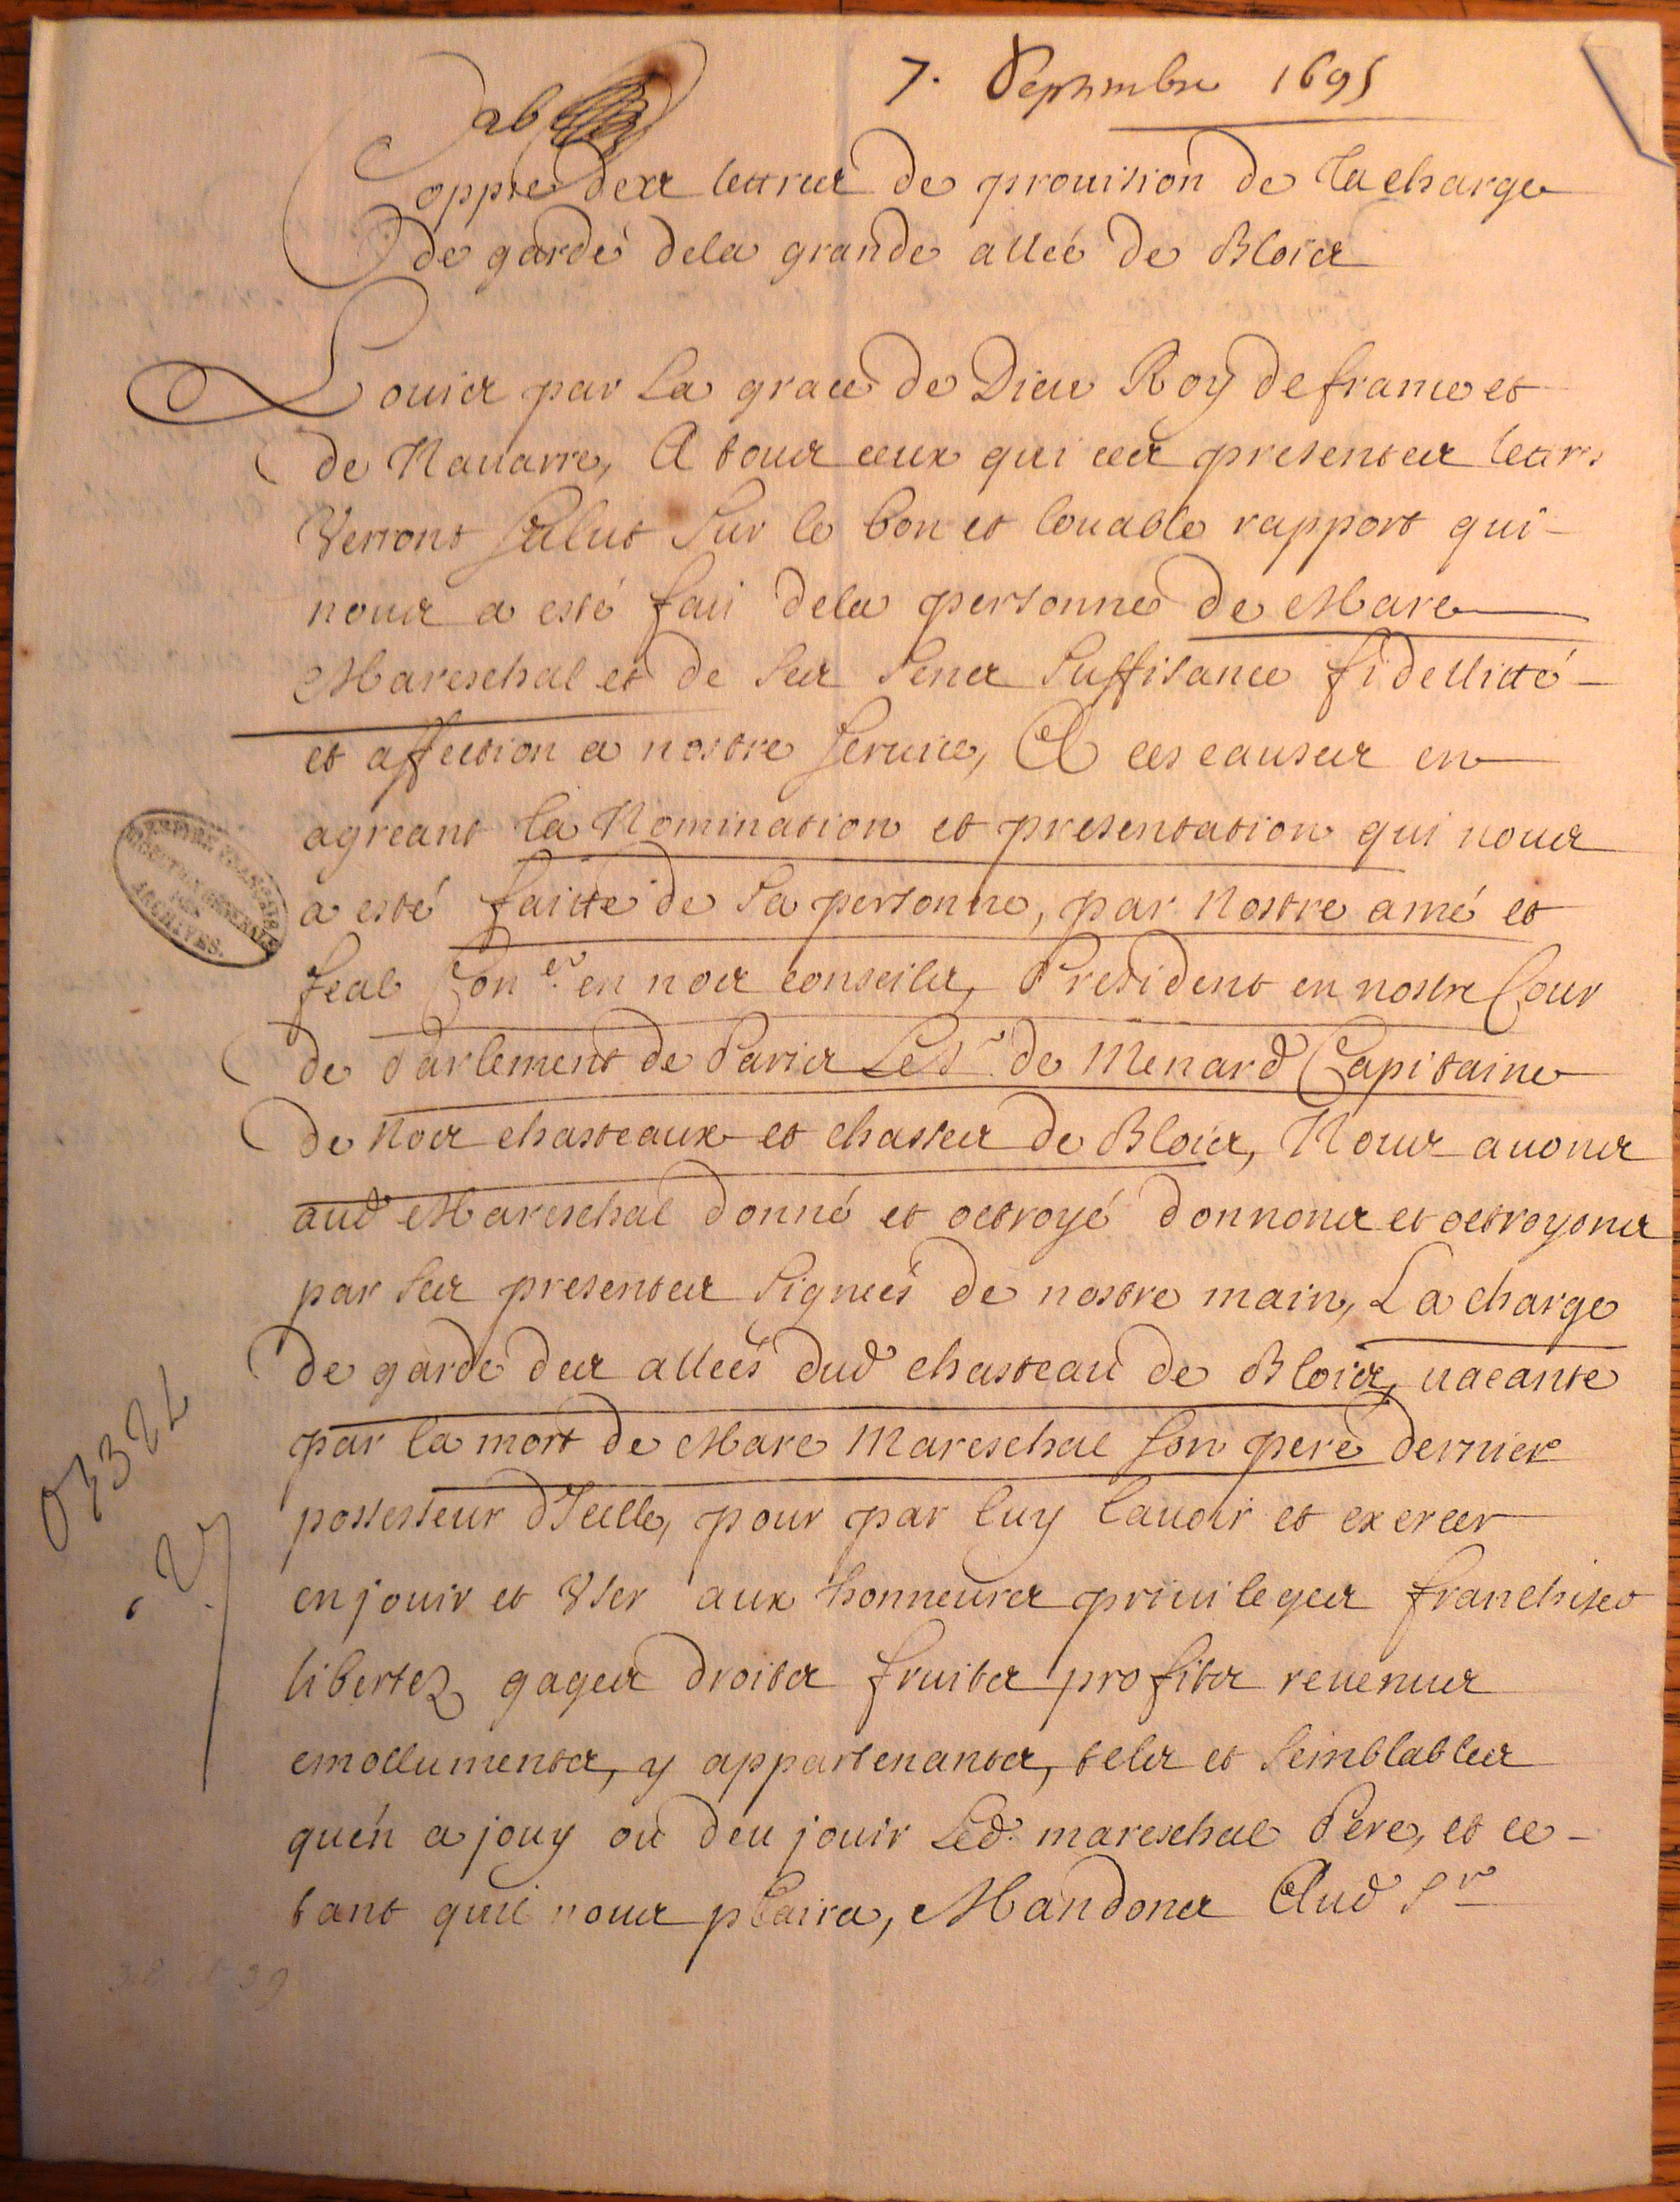 7. Septembre 1695
Coppie des lettres de prouision de la charge
de garde dela grande alleé de Blois
Louis par La grace de Dieu Roy de france et
de Nauarre, A tous ceux qui ces presentes lettres
Verront Salut Sur le bon et louable rapport qui
nous a esté fait dela personne de Marc
Mareschal et de Ses Sens Suffisance fidellitté
et affection a nostre Seruice, A ces causes en
agreant la Nomination et presentation qui nous
a esté faitte de Sa personne, par Nostre amé et
feal Con.er en nos conseils, President en nostre Cour
de Parlement de Paris Le Sr. de Menard Capitaine
de Nos chasteaux et chasses de Blois, Nous auons
aud Mareschal donné et octroyé donnons et octroyons
par Ses presentes Signeés de nostre main, La charge
de garde des alleés dud chasteau de Blois, uacante
par la mort de Marc Mareschal Son pere dernier
possesseur d'Icelle, pour par luy lauoir et exercer
en jouir et Vser aux honneurs priuileges franchises
libertez gages droits fruits profits reuenus
emolluments, y appartenants, tels et Semblables
quén a jouy ou deu jouir Led. mareschal Pere, et ce
tant quil nous plaira, Mandons Aud Sr
EMPIRE FRANÇAIS
DIRECTION GENERALE
DES
ARCHIVES.
38 et 39